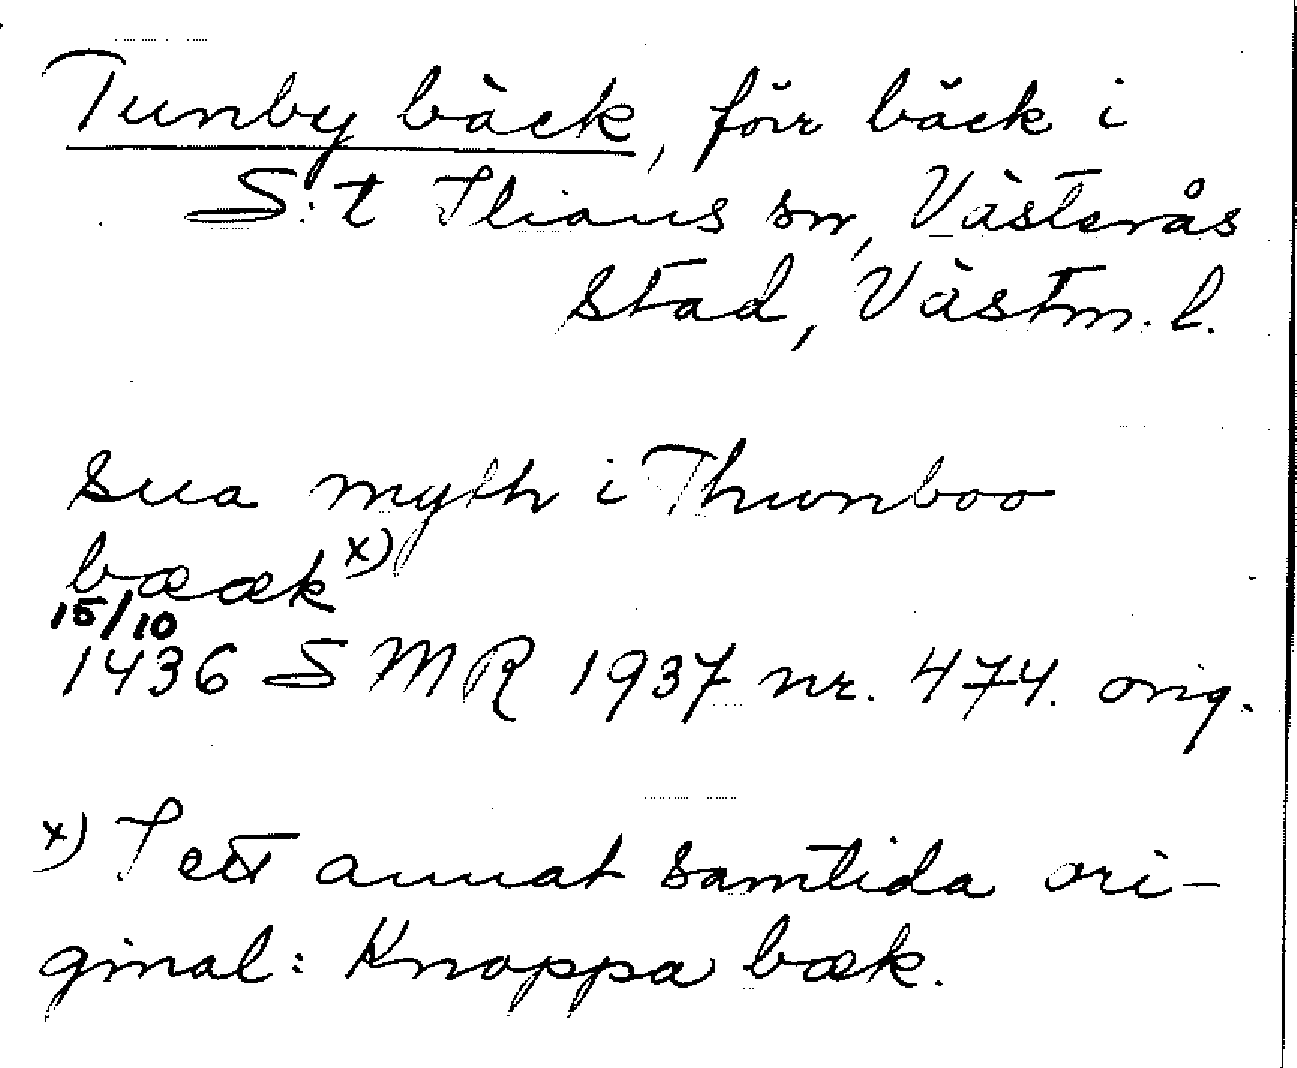 Tunby bäck, för bäck i
S:t Ilians sn, Västerås
stad, Västm. l.
sua myth i Thwnboo
bææk x)
15/10
1436 SMR 1937 nr. 474. orig.
x) I ett annat samtida ori-
ginal: Knoppa bæk.